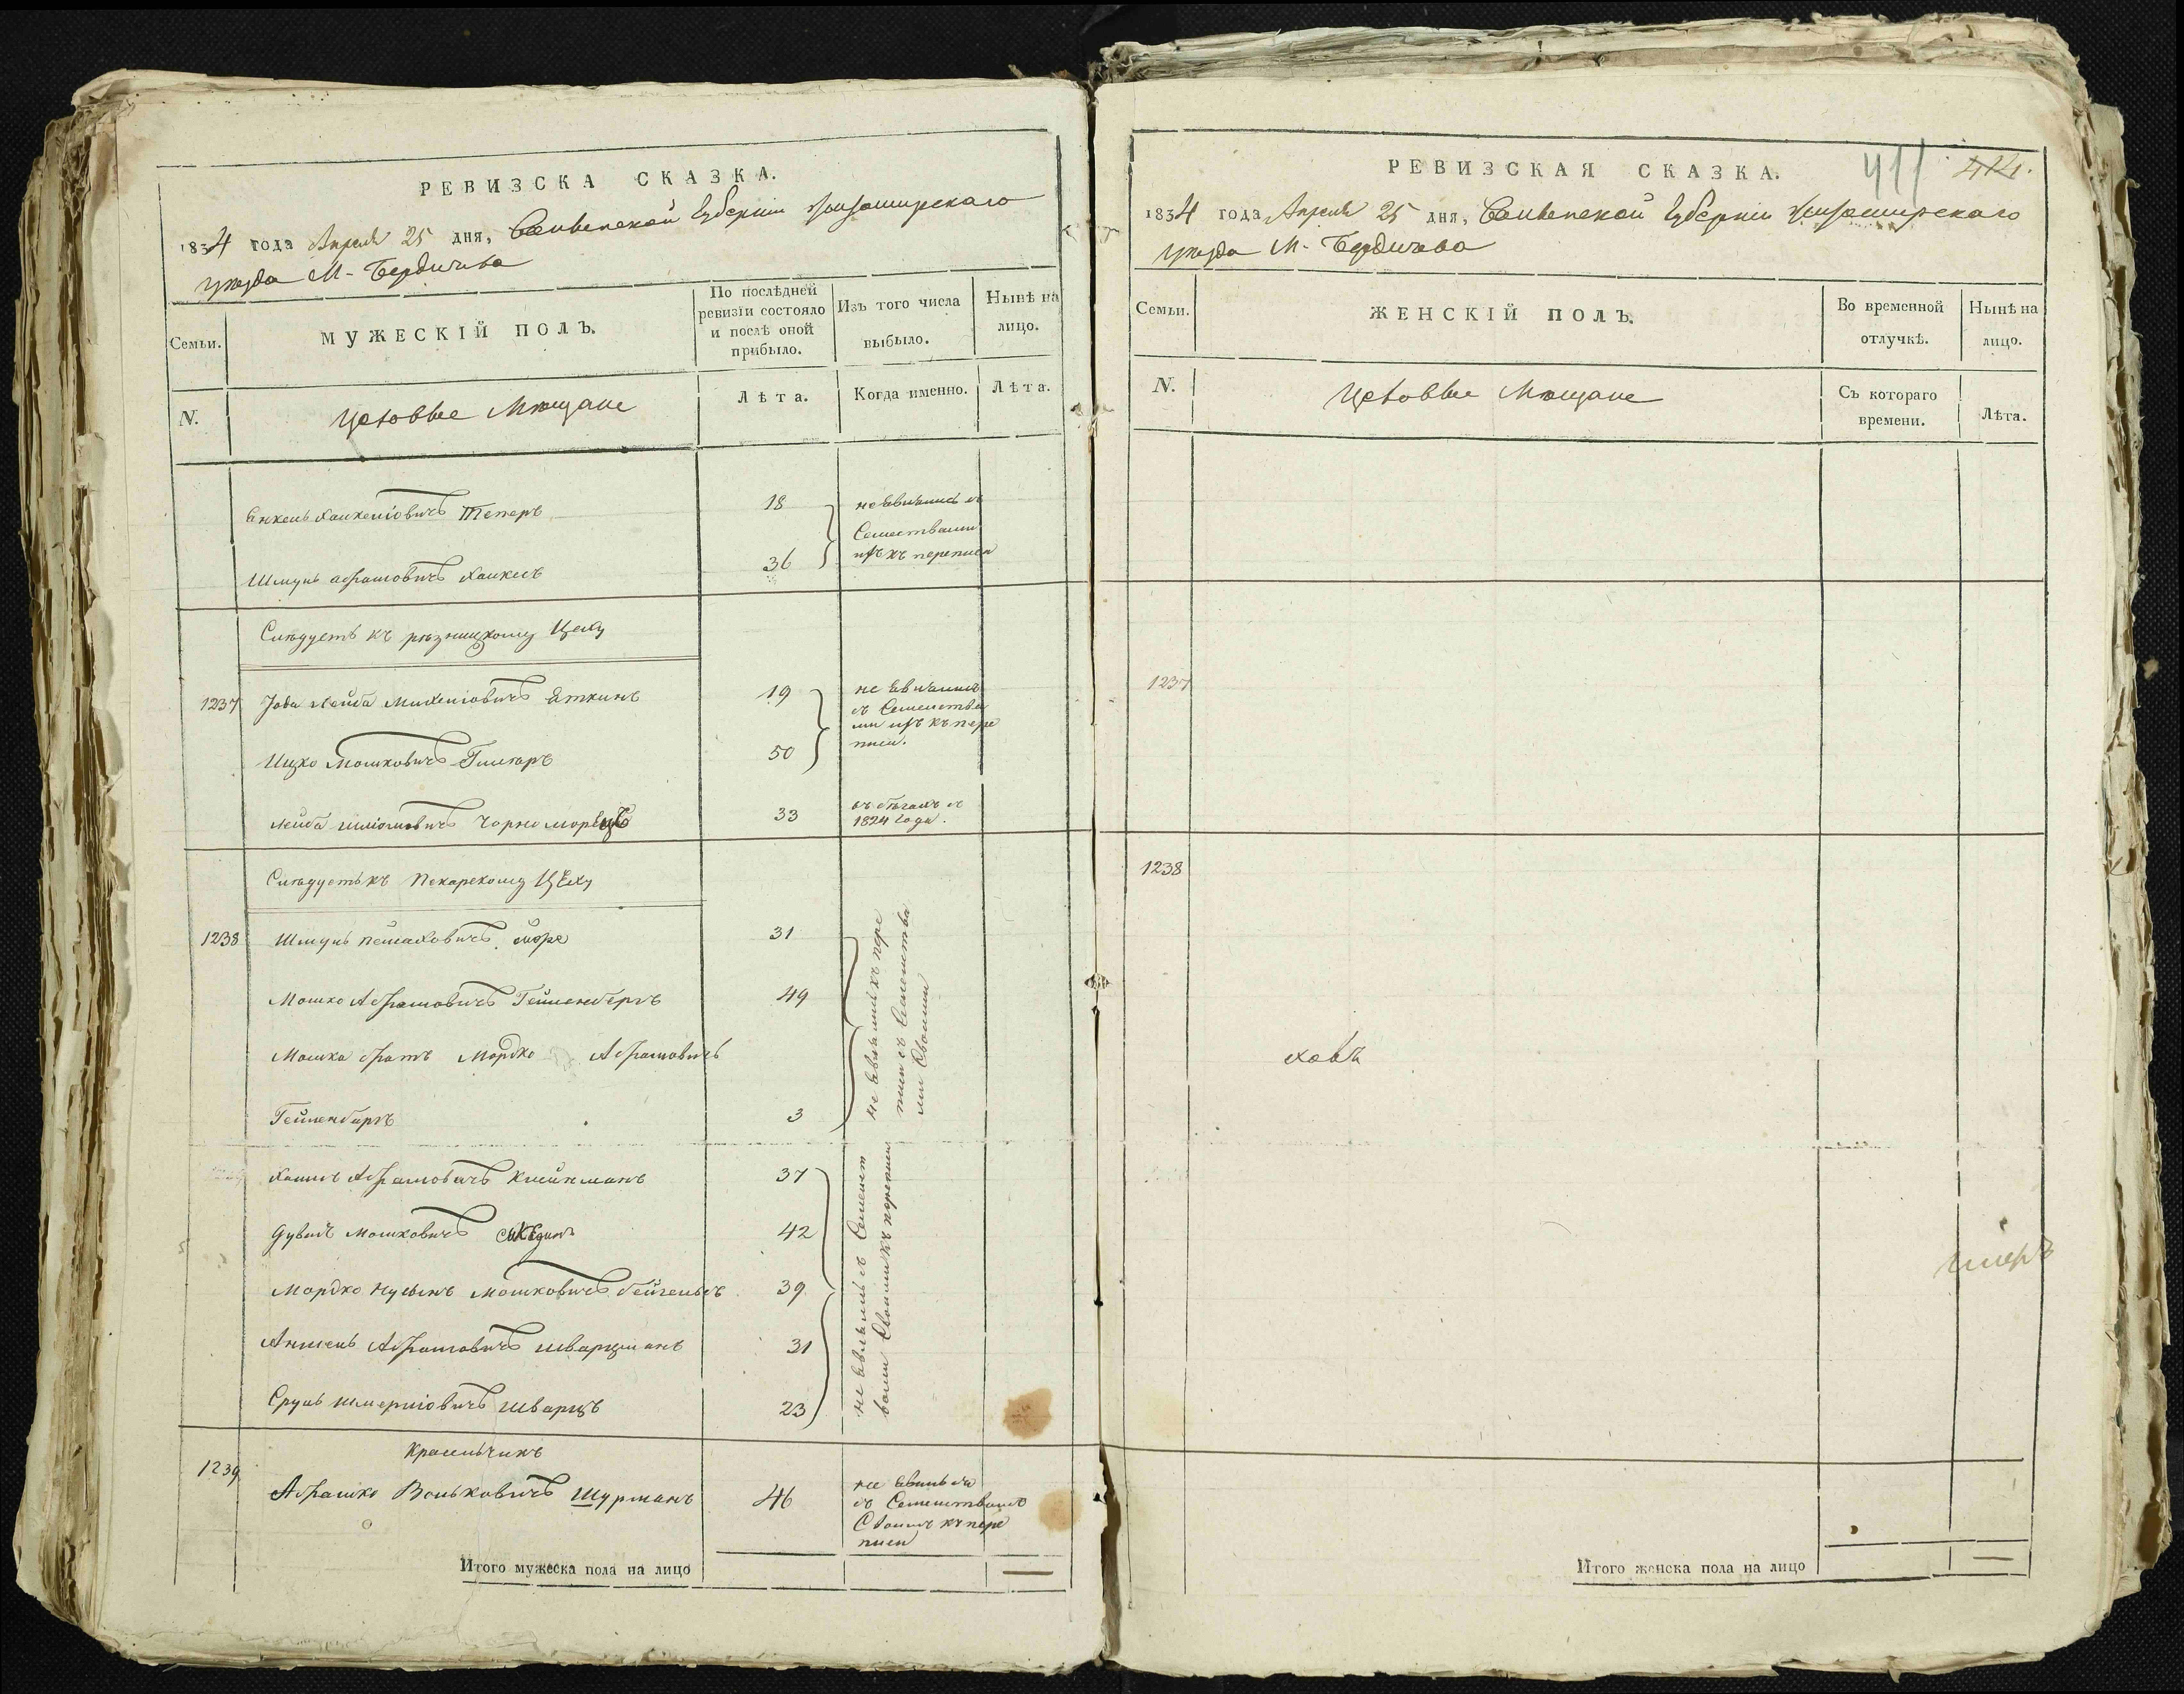 РЕВИЗСКА СКАЗКА.
1834 года Апреля 25 дня, Волынской Губернии Житомирскаго
уезда М. Бердичева
Семьи.
МУЖЕСКІЙ ПОЛЪ.
По послѣдней
ревизіи состояло
и послѣ оной
прибыло.
Изъ того числа
выбыло.
Нынѣ на
лицо.
N.
Цеховые Мещане
Лѣта.
Когда именно.
Лѣта.
Янкель Хаимовичъ Теперъ
18
не явились съ
Семействами
ихъ къ переписи
Шмуль Абрамовичъ
36
Слѣдуетъ къ рѣзницкому Цеху
1237
Лейба Михелiовичъ Еткинъ
19
не явились
съ Семейства
ми ихъ къ пере
писи.
Ицко Мошковичъ
50
Лейба Шліомовичъ Чорноморецъ
33
въ бѣгахъ съ
1824 года.
Слѣдуетъ къ Пекарскому Цеху
1238
Шмуль Пейсаховичъ
31
не явились къ пере
писи съ Семейства
ми Своими
Мошко Абрамовичъ Гейленбергъ
49
Мошка братъ Мордко Абрамовичъ
Гейленбергъ
3
Хаимъ Абрамовичъ Клейнманъ
37
не явились съ Семейст
вами Своими къ переписи
Дувидъ Мошковичъ
42
Мордко Нусынъ Мошковичъ
39
Аншель Абрамовичъ Шварцманъ
31
Сруль Шмерліовичъ Шварцъ
23
Красильчикъ
1239
Абрамко Вольковичъ Шурманъ
46
не явился
съ Семействомъ
Своимъ къ пере
писи
Итого мужеска пола на лицо
—
РЕВИЗСКАЯ СКАЗКА.
411
1834 года Апреля 25 дня, Волынской Губерніи Житомирскаго
уезда М. Бердичева
Семьи.
ЖЕНСКІЙ ПОЛЪ.
Во временной
отлучкѣ.
Нынѣ на
лицо.
N.
Цеховые Мещане
Съ котораго
времени.
Лѣта.
1237
1238
ховъ
Итого женска пола на лицо
—